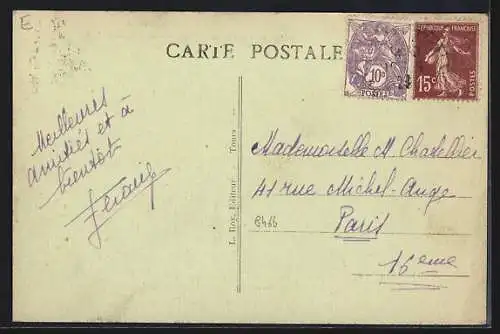 E
CARTE POSTALE
REPUBLIQUE FRANCAISE
10c
15c
POSTES
POSTES
Meilleures
amitiés et à
bientôt
Mademoiselle M Chatellier
41 rue Michel-Ange
Paris
16eme
L. Roy, Editeur Tours